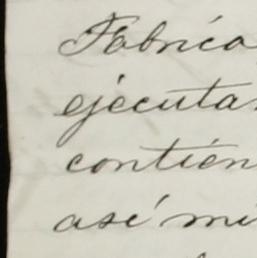 Fábrica
ejecuta
contien
asi mi